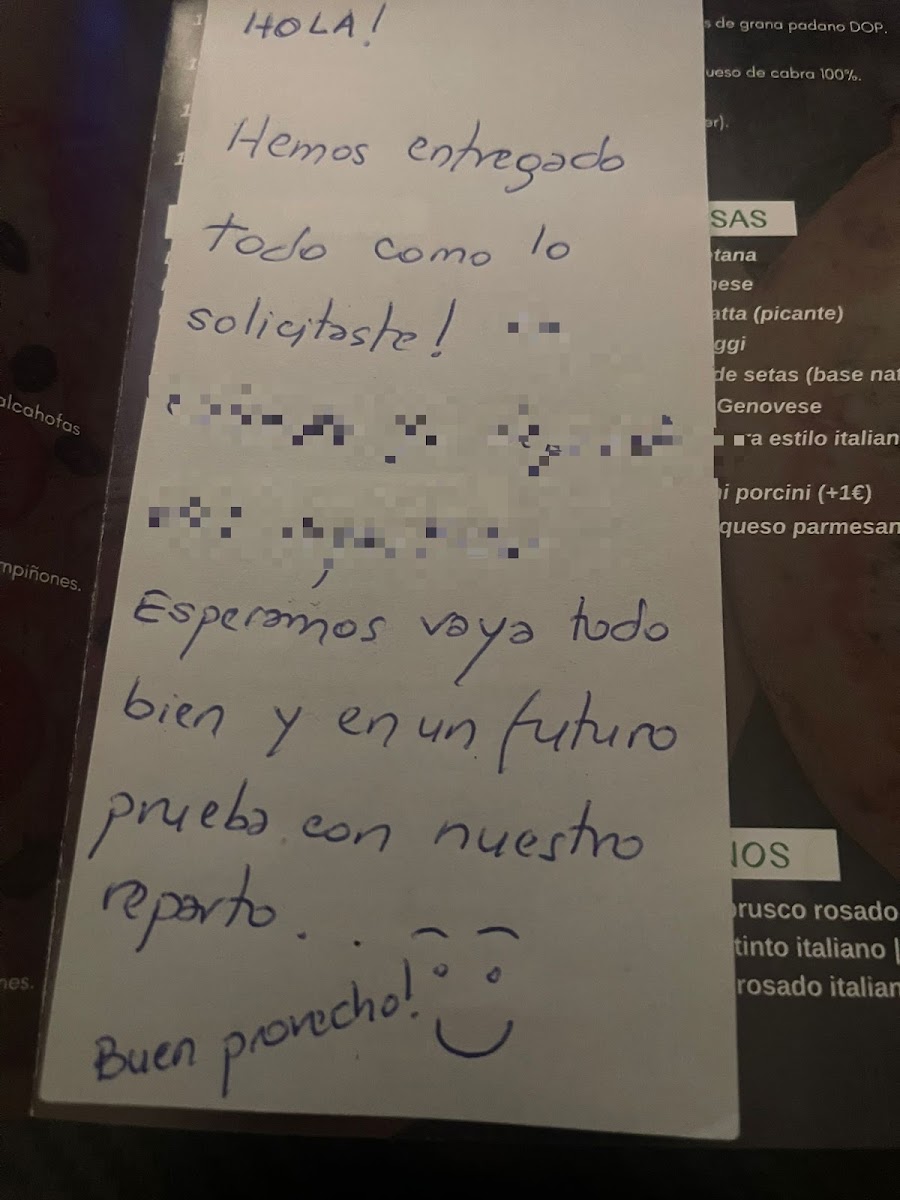 HOLA!
Hemos entregado
todo como lo
solicitaste!
Esperamos vaya todo
bien y en un futuro
prueba con nuestro
reparto...
Buen provecho!
s de grana padano DOP.
ueso de cabra 100%.
er).
SAS
tana
nese
atta (picante)
ggi
de setas (base nat
Genovese
a estilo italian
ni porcini (+1€)
queso parmesan
NOS
brusco rosado
tinto italiano |
rosado italian
alcahofas
mpiñones.
nes.